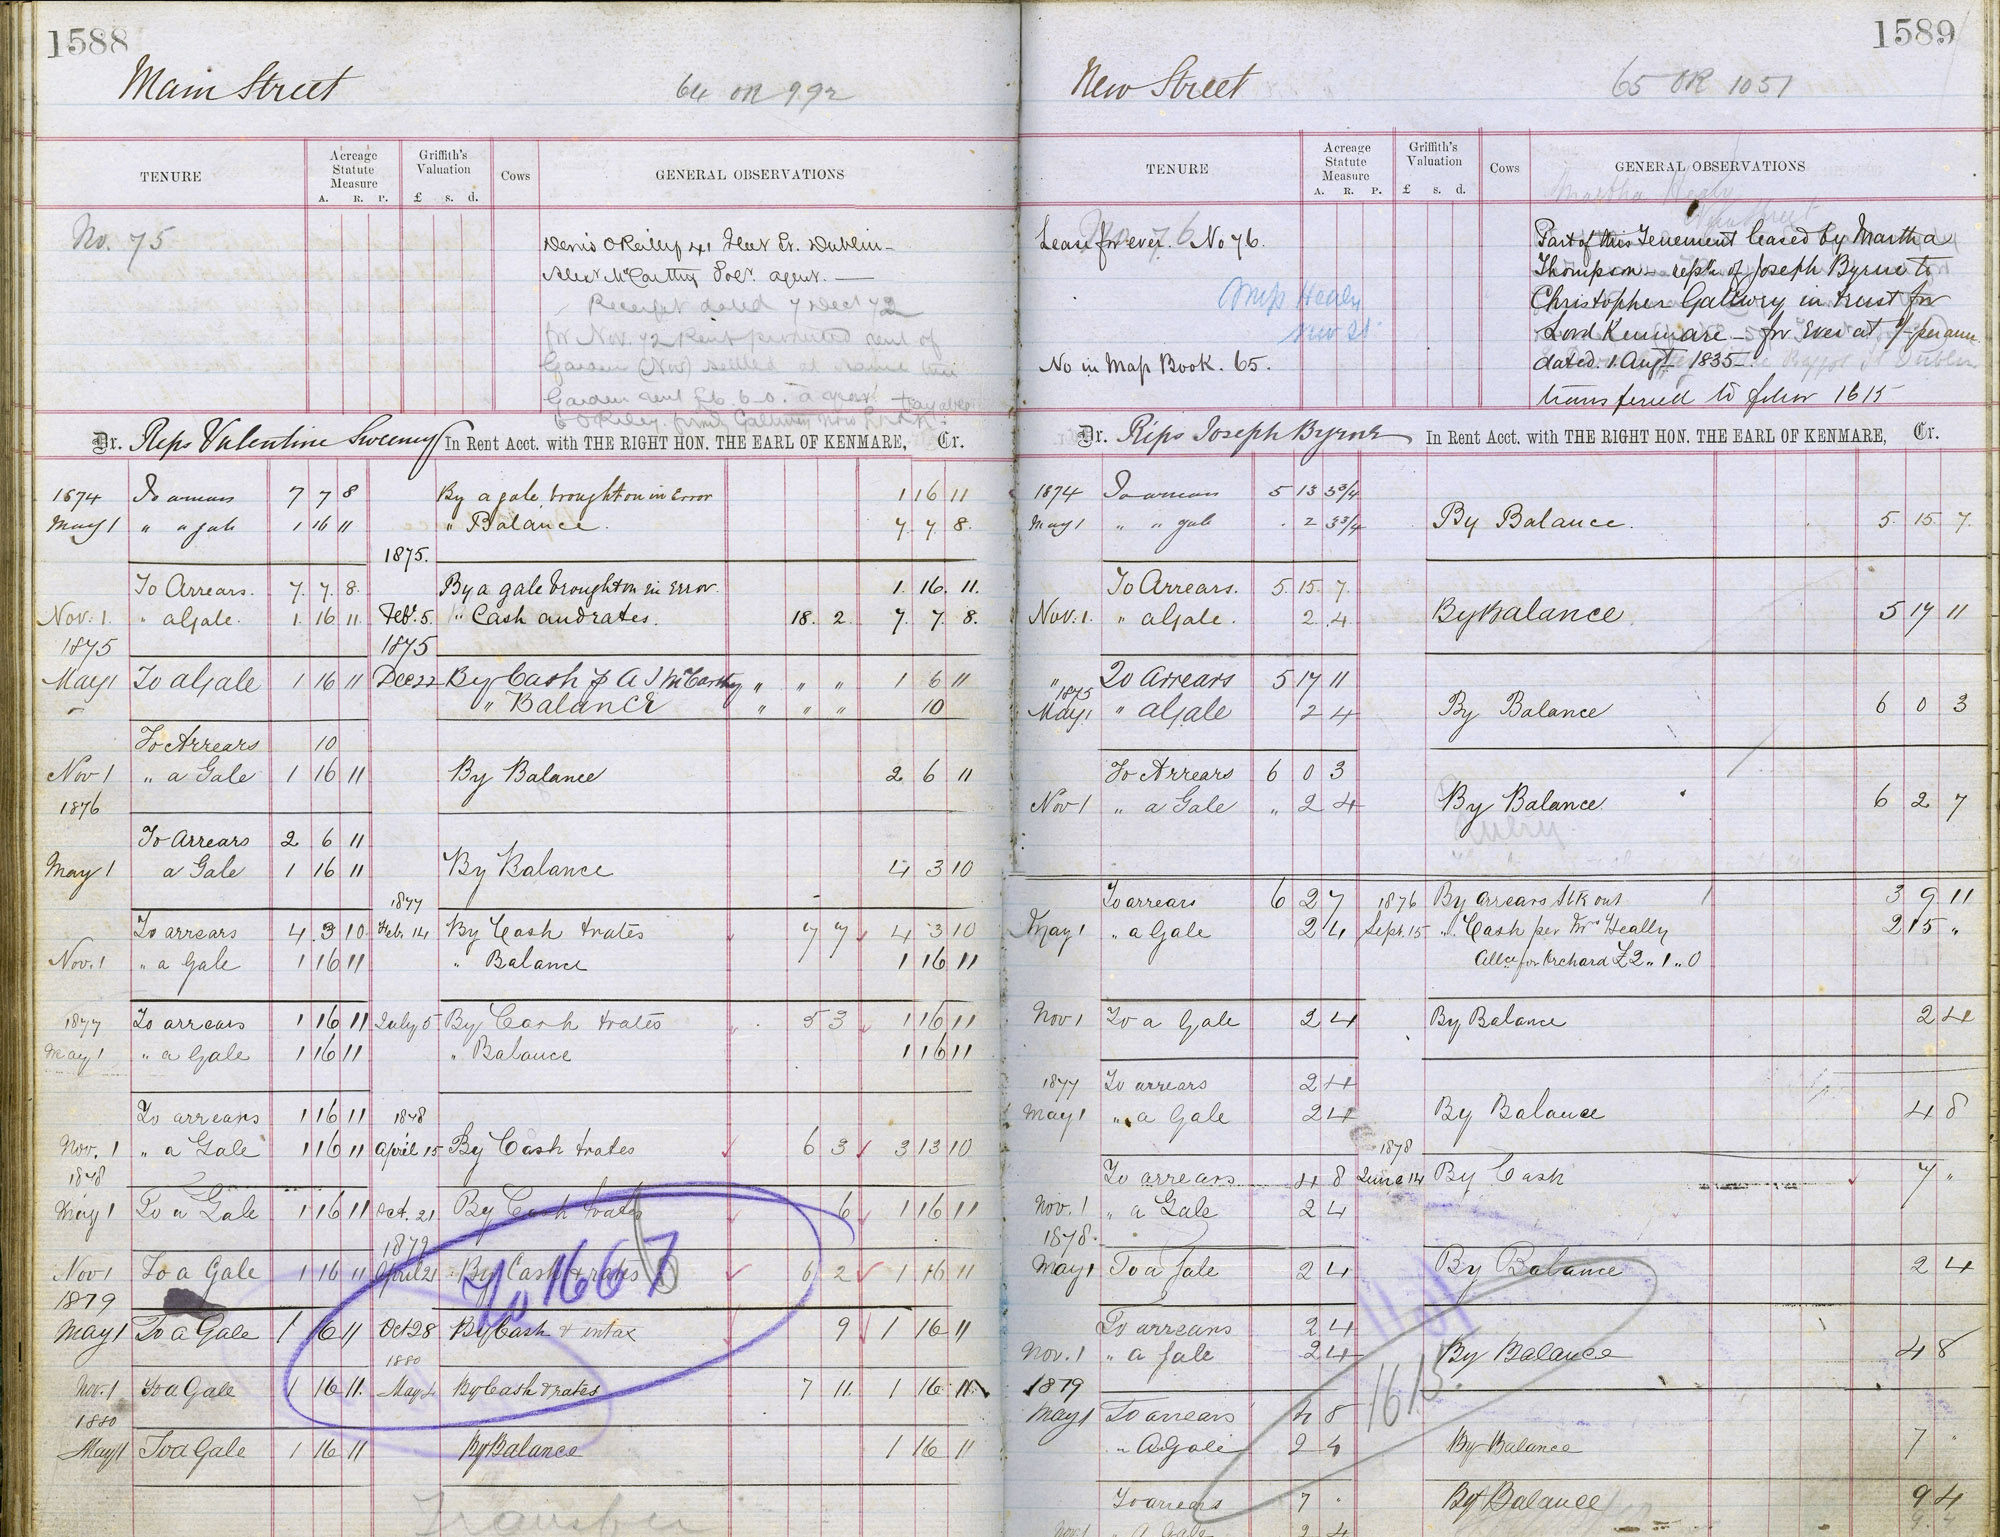 1588
Main Street
64 OR 992
TENURE
Acreage Statute Measure
A. R. P.
Griffith's Valuation
£ s. d.
Cows
GENERAL OBSERVATIONS
No. 75
Denis O'Reilly 41 Fleet St. Dublin
Alexr McCarthy Solr. agent.
Receipt dated 7 Decr 72
for Nov. 72 Rent promised rent of
Garden (Nov) settled at same time
Garden rent £6. 6-0. a year
Dr. Reps Valentine Sweeney In Rent Acct. with THE RIGHT HON. THE EARL OF KENMARE, Cr.
1874 To arrears 7 7 8 By a gale brought on in Error 1 16 11
May 1 " a gale 1 16 11 " Balance. 7. 7. 8.
1875.
To Arrears. 7. 7. 8. By a gale brought on in Error. 1. 16. 11.
Nov. 1. " a Gale. 1. 16 11. Feb. 5. " Cash and rates. 18. 2. 7. 7. 8.
1875 1875
May 1 To a Gale 1 16 11 Dec 22 By Cash p A J McCarthy " " " 1 6 11
" Balance " " " 10
To Arrears 10
Nov 1 " a Gale 1 16 11 By Balance 2 6 11
1876
To Arrears 2 6 11
May 1 a Gale 1 16 11 By Balance 4 3 10
1877
To arrears 4. 3 10 Feb. 14 By Cash & rates 7 7 4 3 10
Nov. 1 " a Gale 1 16 11 " Balance 1 16 11
1877 To arrears 1 16 11 July 5 By Cash & rates 5 3 1 16 11
May 1 " a Gale 1 16 11 " Balance 1 16 11
To arrears 1 16 11 1878
Nov. 1 " a Gale 1 16 11 April 15 By Cash & rates 6 3 3 13 10
1878
May 1 To a Gale 1 16 11 Oct. 21 By Cash & rates 6 1 16 11
1879
Nov 1 To a Gale 1 16 11 April 21 By Cash & rates 6 2 1 16 11
To 1667
1879
May 1 To a Gale 1 16 11 Oct 28 By Cash & intax 9 1 16 11
1880
Nov. 1 To a Gale 1 16 11. May 4 By Cash & rates 7 11. 1 16 11.
1880
May 1 To a Gale 1 16 11 By Balance 1 16 11
Transfer
1589
New Street
65 OR 1051
TENURE
Acreage Statute Measure
A. R. P.
Griffith's Valuation
£ s. d.
Cows
GENERAL OBSERVATIONS
Martha Healy
New Street
Lease for ever. No 76.
No. 76
Mrs Healy
New St.
No in Map Book. 65.
Part of this Tenement leased by Martha
Thompson - repve of Joseph Byrne to
Christopher Gallwey in trust for
Lord Kenmare - for Ever at 1/- per ann
dated. 1. Augt 1835 -
transferred to folio 1615
Dr. Reps Joseph Byrne In Rent Acct. with THE RIGHT HON. THE EARL OF KENMARE, Cr.
1874 To arrears 5 13 3¾
May 1 " " gale . 2 3¾ By Balance. 5. 15. 7.
To Arrears. 5. 15. 7.
Nov. 1. " a Gale. 2. 4. By Balance. 5 17 11
" To Arrears 5 17 11
1875
May 1 " a Gale 2 4 By Balance 6 0 3
To Arrears 6 0 3
Nov 1 " a Gale " 2 4 By Balance 6 2 7
Query
To arrears 6 2 7 1876 By arrears Stk out 3 9 11
May 1 " a Gale 2 4 Sept. 15 " Cash per Mrs Heally 2 15 "
Allce for Orchard £2 " 1 " 0
Nov 1 To a Gale 2 4 By Balance 2 4
1877 To arrears 2 4
May 1 " a Gale 2 4 By Balance 4 8
1878
To arrears 4 8 June 14 By Cash 7 "
Nov. 1 " a Gale 2 4
1878.
May 1 To a gale 2 4 By Balance 2 4
To arrears 2 4
Nov. 1 " a gale 2 4 By Balance 4 8
1615.
1879
May 1 To arrears 4 8
" A Gale 2 4 By Balance 7 "
To arrears 7 " By Balance 9 4
Nov 1 " a Gale 2 4